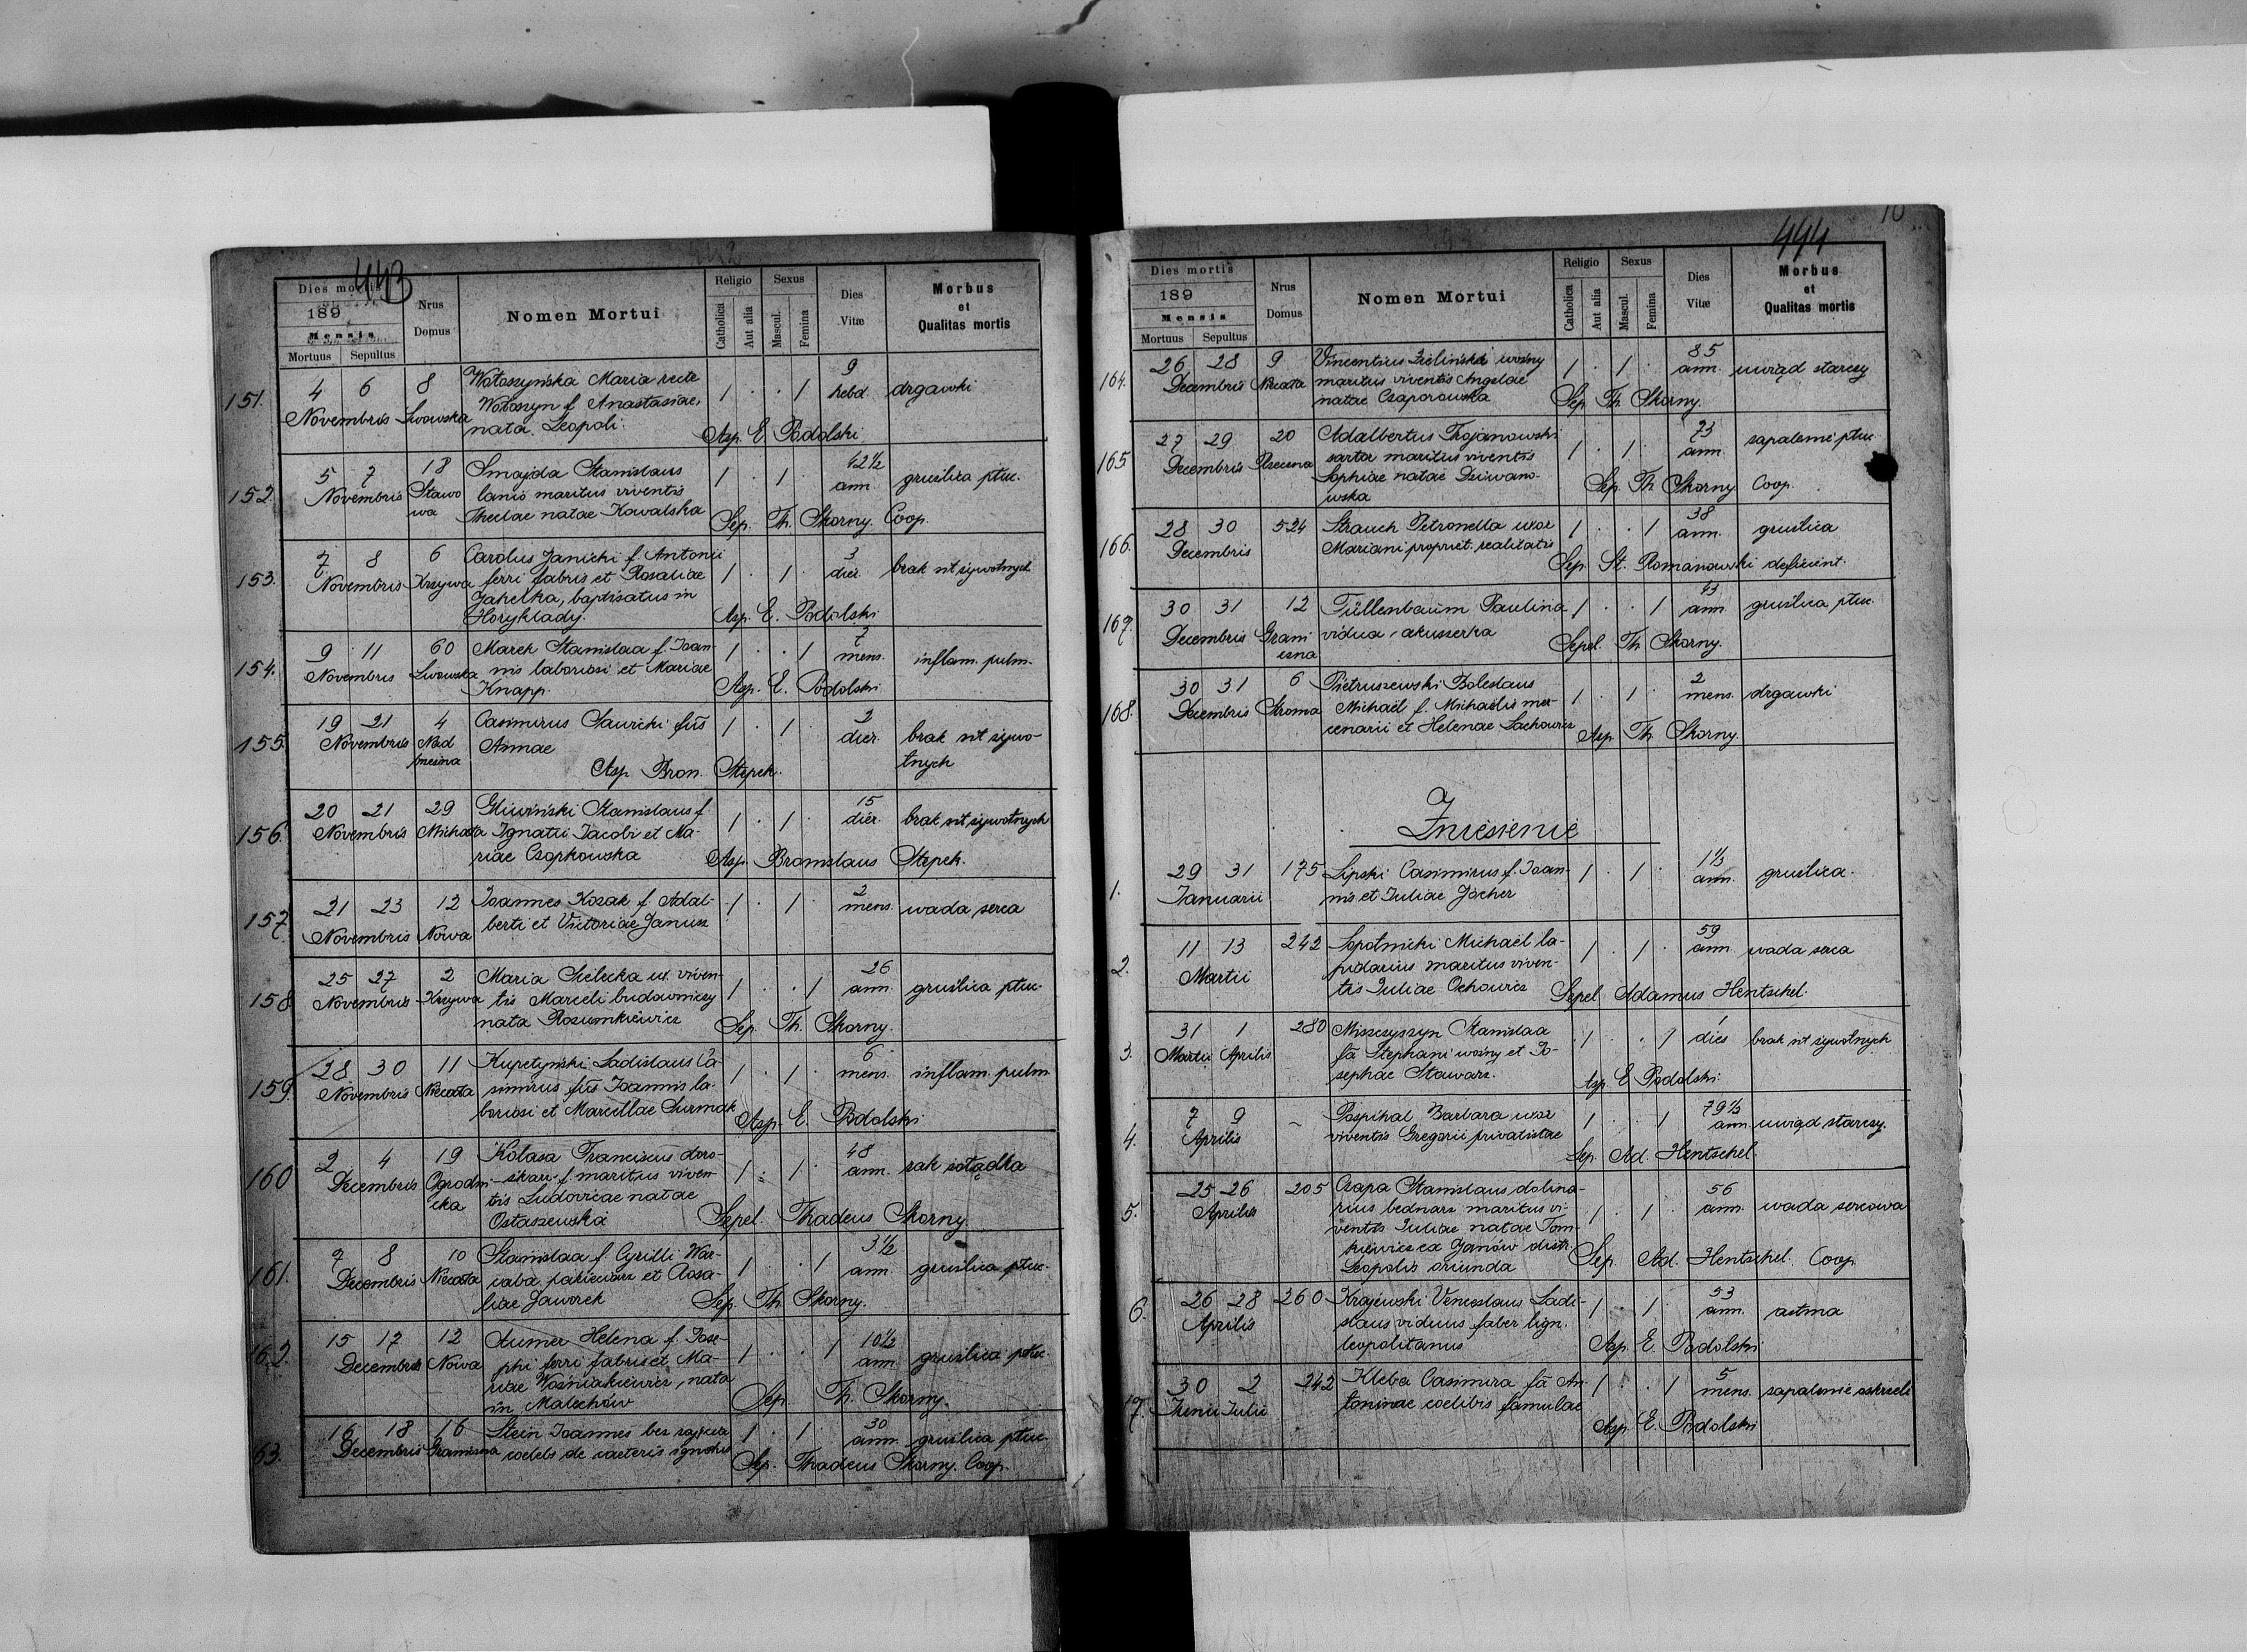 443
Dies mortis
189
Mensis
Mortuus Sepultus
Nrus Domus
Nomen Mortui
Religio
Catholica
Aut alia
Sexus
Mascul.
Femina
Dies Vitæ
Morbus et Qualitas mortis
151. 4 6 8 Wołoszyńska Maria recte 1 . . 1 9
Novembris Lwowska Wołoszyn f. Anastasiae, hebd. drgawki
nata Leopoli. Asp. E. Podolski
152. 5 7 18 Smajda Stanislaus 1 . 1 . 42½
Novembris Stawowa lanio maritus viventis ann. gruźlica płuc.
Theclae natae Kowalska Sep. Th. Skorny. Coop.
153. 7 8 6 Carolus Janicki f. Antonii 3
Novembris Krzywa ferri fabris et Rosaliae 1 . 1 . dier. brak sił żywotnych
Jahelka, baptisatus in
Horyhlady. Asp. E. Podolski
154. 9 11 60 Marek Stanislaa f. Joan- 1 . . 1 7
Novembris Lwowska nis laboriosi et Mariae mens. inflam. pulm.
Knapp. Asp. E. Podolski
155. 19 21 4 Casimirus Sawicki fius 1 . 1 . 2
Novembris Annae dier. brak sił żywo-
tnych
Asp. Bron. Stepek.
156. 20 21 29 Gliwiński Stanislaus f. 15
Novembris Michała Ignatii Jacobi et Ma- 1 . 1 . dier. brak sił żywotnych
riae Czopkowska Asp. Bronislaus Stepek.
157. 21 23 12 Joannes Kozak f. Adal- 1 . 1 . 2
Novembris Nowa berti et Victoriae Janusz mens. wada serca
158 25 27 2 Maria Sielecka ux. viven- 26
Novembris Krzywa tis Marceli budowniczy 1 . . 1 ann. gruźlica płuc.
nata Rozumkiewicz Sep. Th. Skorny.
159. 28 30 11 Kupetyński Ladislaus Ca- 6
Novembris Niecała simirus fius Joannis la- 1 . 1 . mens. inflam. pulm.
boriosi et Marcellae Surmak Asp. E. Podolski
160 2 4 19 Kolasa Franciscus doro- 48
Decembris Ogrodnicka żkarz f. maritus viven- 1 . 1 . ann. rak żołądka
tis Ludovicae natae
Ostaszewska Sepel. Thadeus Skorny.
161. 7 8 10 Stanislaa f. Cyrilli War- 3½
Decembris Niecała caba et Rosa- 1 . . 1 ann. gruźlica płuc.
liae Jaworek Sep. Th. Skorny.
162. 15 17 12 Aumer Helena f. Jose- 10½
Decembris Nowa phi ferri fabris et Ma- 1 . . 1 ann. gruźlica płuc.
riae Woźniakiewicz, nata
in Malechów Sep. Th. Skorny.
63. 16 18 16 Stein Joannes bez zajęcia 1 . 1 . 30
Decembris Graniczna coelebs de caeteris ignotus ann. gruźlica płuc.
Sep. Thadeus Skorny. Coop.
10
444
Dies mortis
189
Mensis
Mortuus Sepultus
Nrus Domus
Nomen Mortui
Religio
Catholica
Aut alia
Sexus
Mascul.
Femina
Dies Vitæ
Morbus et Qualitas mortis
164. 26 28 9 Vincentius Zieliński woźny 1 . 1 . 85
Decembris Niecała maritus viventis Angelae ann. uwiąd starczy
natae Czaporowska Sep. Th. Skorny.
165 27 29 20 Adalbertus Trojanowski 1 . 1 . 73
Decembris sartor maritus viventis ann. zapalenie płuc.
Sophiae natae Dziwano-
wska Sep. Th. Skorny Coop.
166. 28 30 524 Strauch Petronella uxor 1 . . 1 38
Decembris Mariani propriet. realitatis ann. gruźlica
Sep. St. Romanowski deficient.
167. 30 31 12 Tüllenbaum Paulina 1 . . 1 43
Decembris Graniczna vidua, akuszerka ann. gruźlica płuc.
Sepel. Th. Skorny.
168. 30 31 6 Pietruszewski Boleslaus 1 . 1 . 2
Decembris Stroma Michaël f. Michaëlis mer- mens. drgawki
cenarii et Helenae Lachowicz Asp. Th. Skorny.
Zniesienie
1. 29 31 175 Lipski Casimirus f. Joan- 1 . 1 . 1⅓
Januarii nis et Juliae Jöcher ann. gruźlica.
2. 11 13 242 Sopotnicki Michaël la- 1 . 1 . 59
Martii pidarius maritus viven- ann. wada serca
tis Juliae Ochowicz Sepel Adamus Hentschel.
3. 31 1 280 Miszczyszyn Stanislaa 1 . . 1 1
Martii Aprilis fa Stephani woźny et Jo- dies brak sił żywotnych
sephae Stawarz. Asp. E. Podolski.
4. 7 9 - Pospihal Barbara uxor 1 . . 1 79⅓
Aprilis viventis Gregorii privatistae ann. uwiąd starczy.
Sep. Ad. Hentschel.
5. 25 26 205 Czapa Stanislaus dolina- 56
Aprilis rius bednarz maritus vi- 1 . 1 . ann. wada sercowa
ventis Juliae natae Tom-
kiewicz ex Janów distr.
Leopolis oriunda Sep. Ad. Hentschel. Coop.
6. 26 28 260 Krajewski Venceslaus Ladi- 53
Aprilis slaus viduus faber lign. 1 . 1 . ann. astma
leopolitanus Asp. E. Podolski
7. 30 2 242 Kleba Casimira fa An- 1 . . 1 5
Junii Julii toninae coelibis famulae mens. zapalenie oskrzeli
Asp. E. Podolski